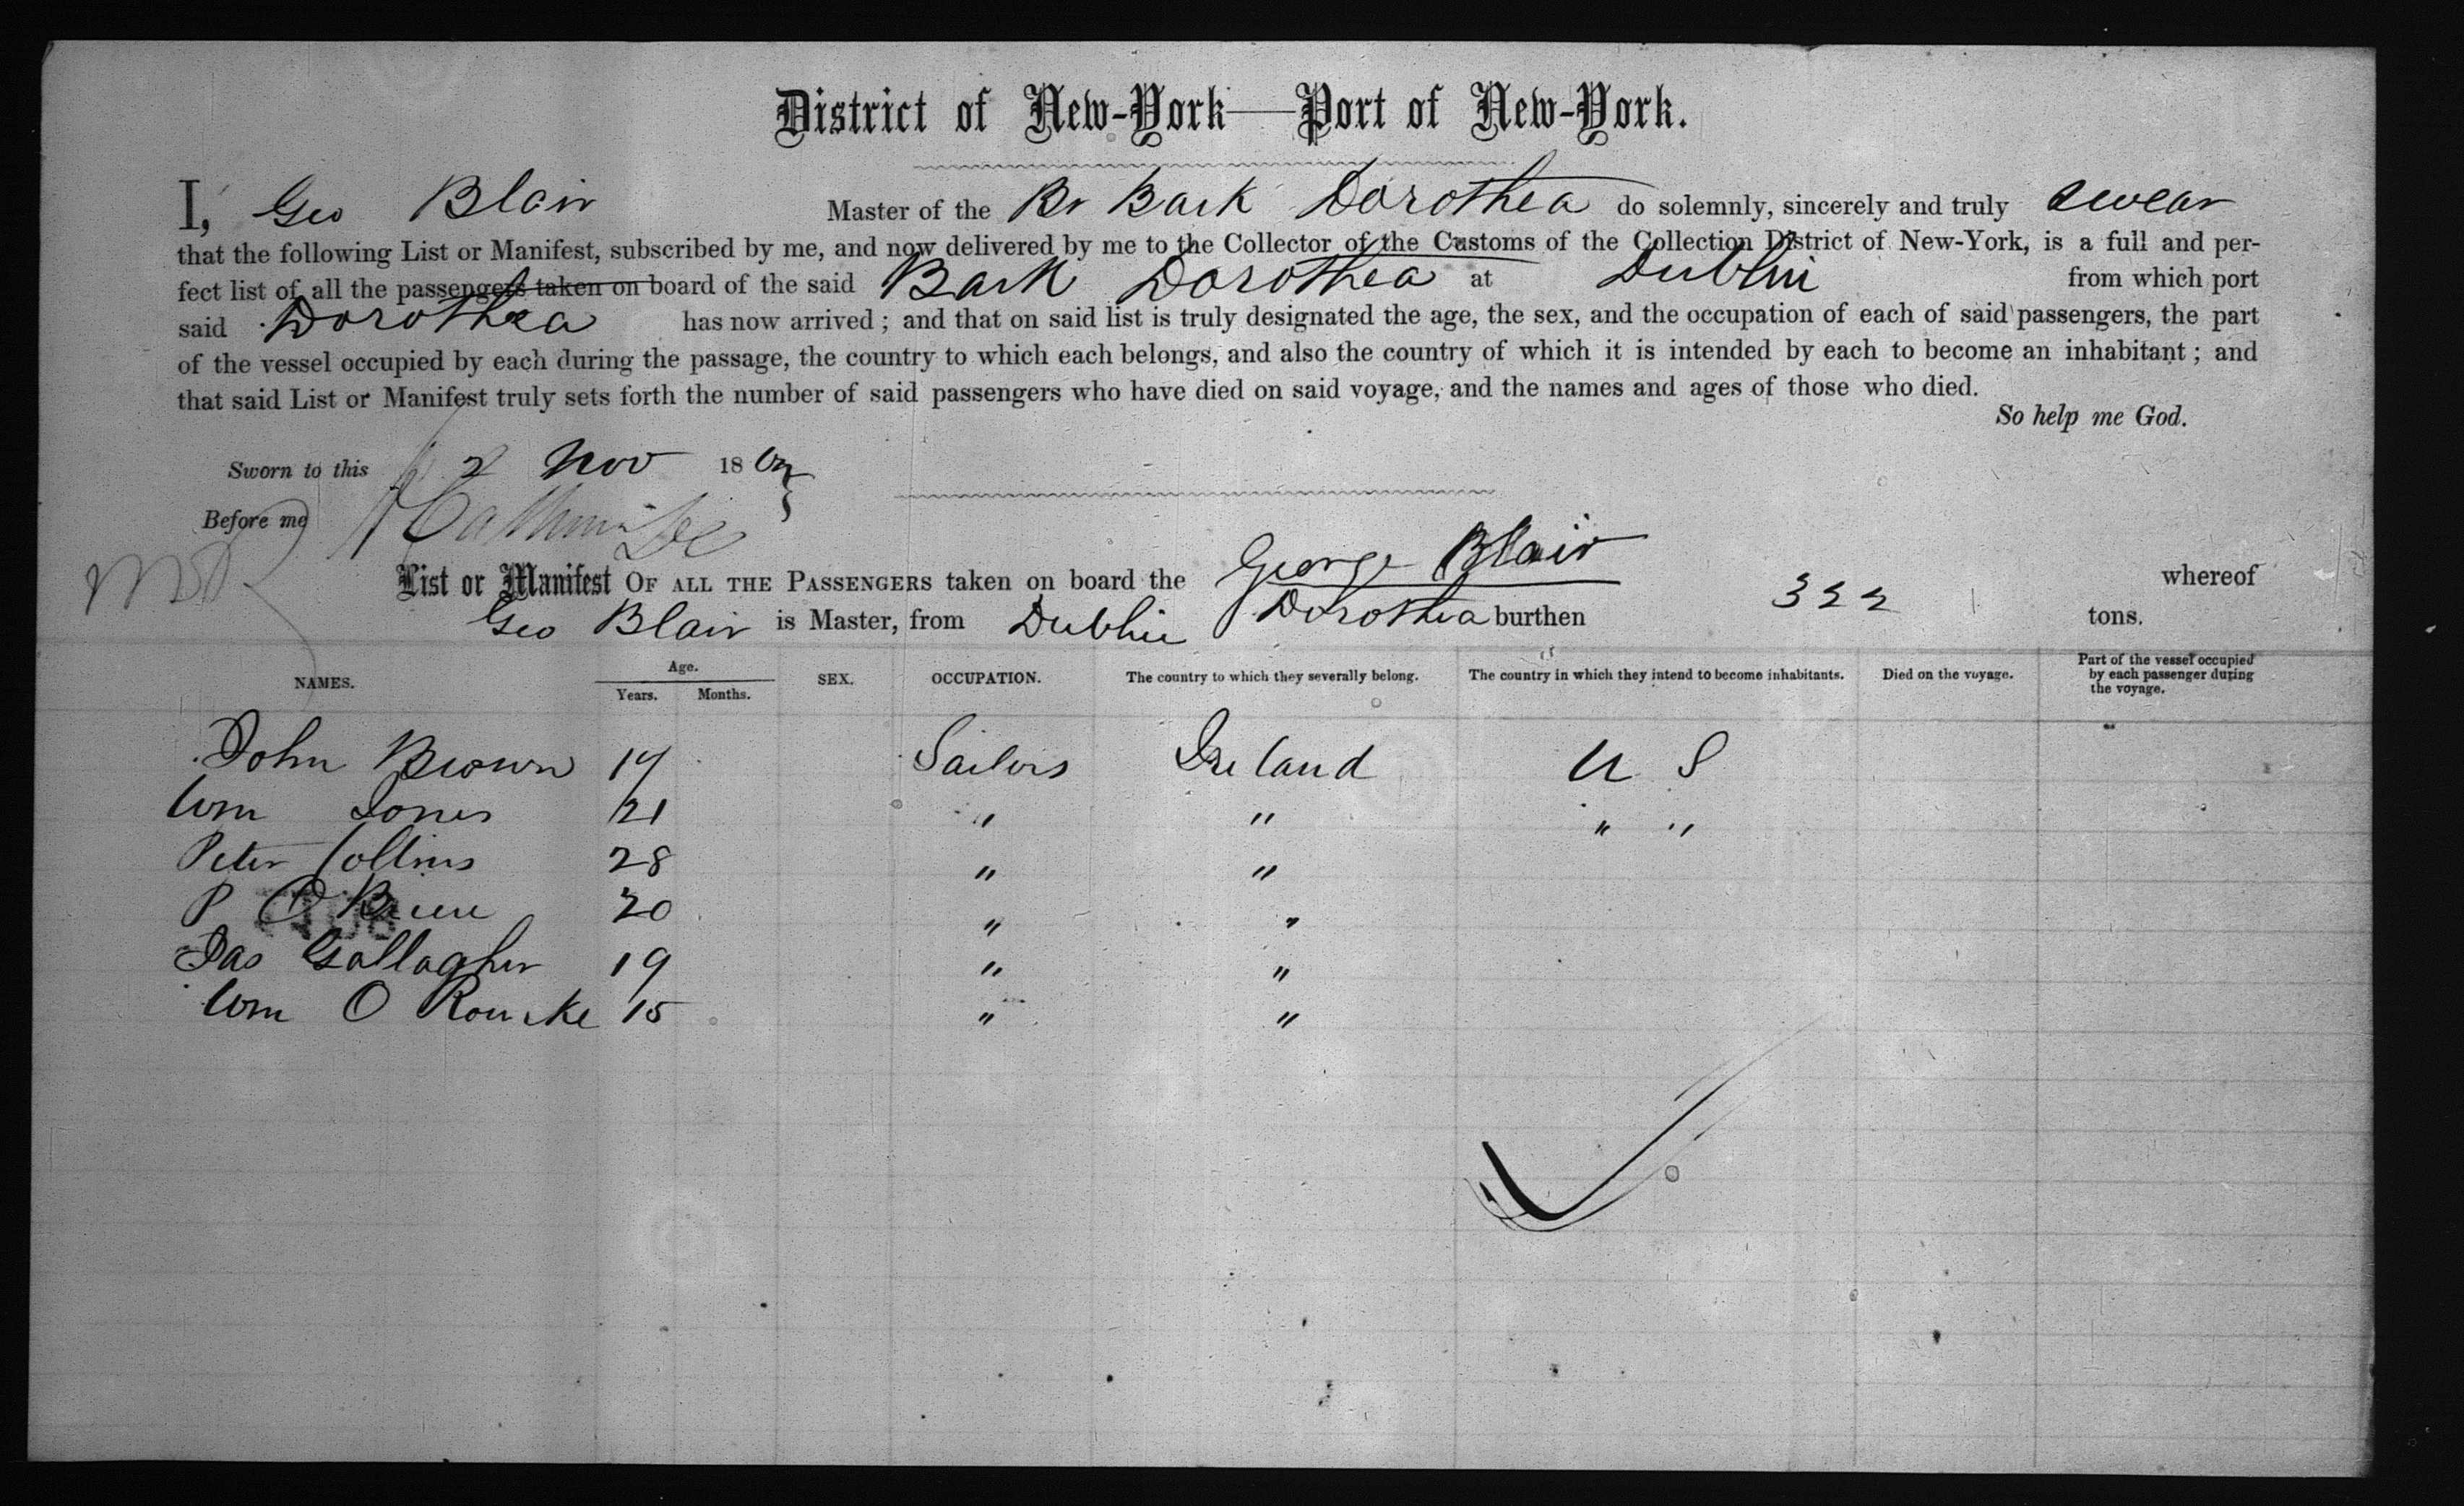 District of New-York—Port of New-York.
I, Geo Blair Master of the Br Bark Dorothea do solemnly, sincerely and truly swear
that the following List or Manifest, subscribed by me, and now delivered by me to the Collector of the Customs of the Collection District of New-York, is a full and per-
fect list of all the passengers taken on board of the said Bark Dorothea at Dublin from which port
said Dorothea has now arrived; and that on said list is truly designated the age, the sex, and the occupation of each of said passengers, the part
of the vessel occupied by each during the passage, the country to which each belongs, and also the country of which it is intended by each to become an inhabitant; and
that said List or Manifest truly sets forth the number of said passengers who have died on said voyage, and the names and ages of those who died.
So help me God.
Sworn to this 2 Nov 18
Before me
George Blair
List or Manifest OF ALL THE PASSENGERS taken on board the Dorothea whereof
Geo Blair is Master, from Dublin burthen 322 tons.
NAMES. Age. Years. Months. SEX. OCCUPATION. The country to which they severally belong. The country in which they intend to become inhabitants. Died on the voyage. Part of the vessel occupied by each passenger during the voyage.
John Brown 17 Sailors Ireland U S
Wm Jones 21 " " " "
Peter Collins 28 " "
P O Briene 20 " "
Jas Gallagher 19 " "
Wm O Rourke 15 " "